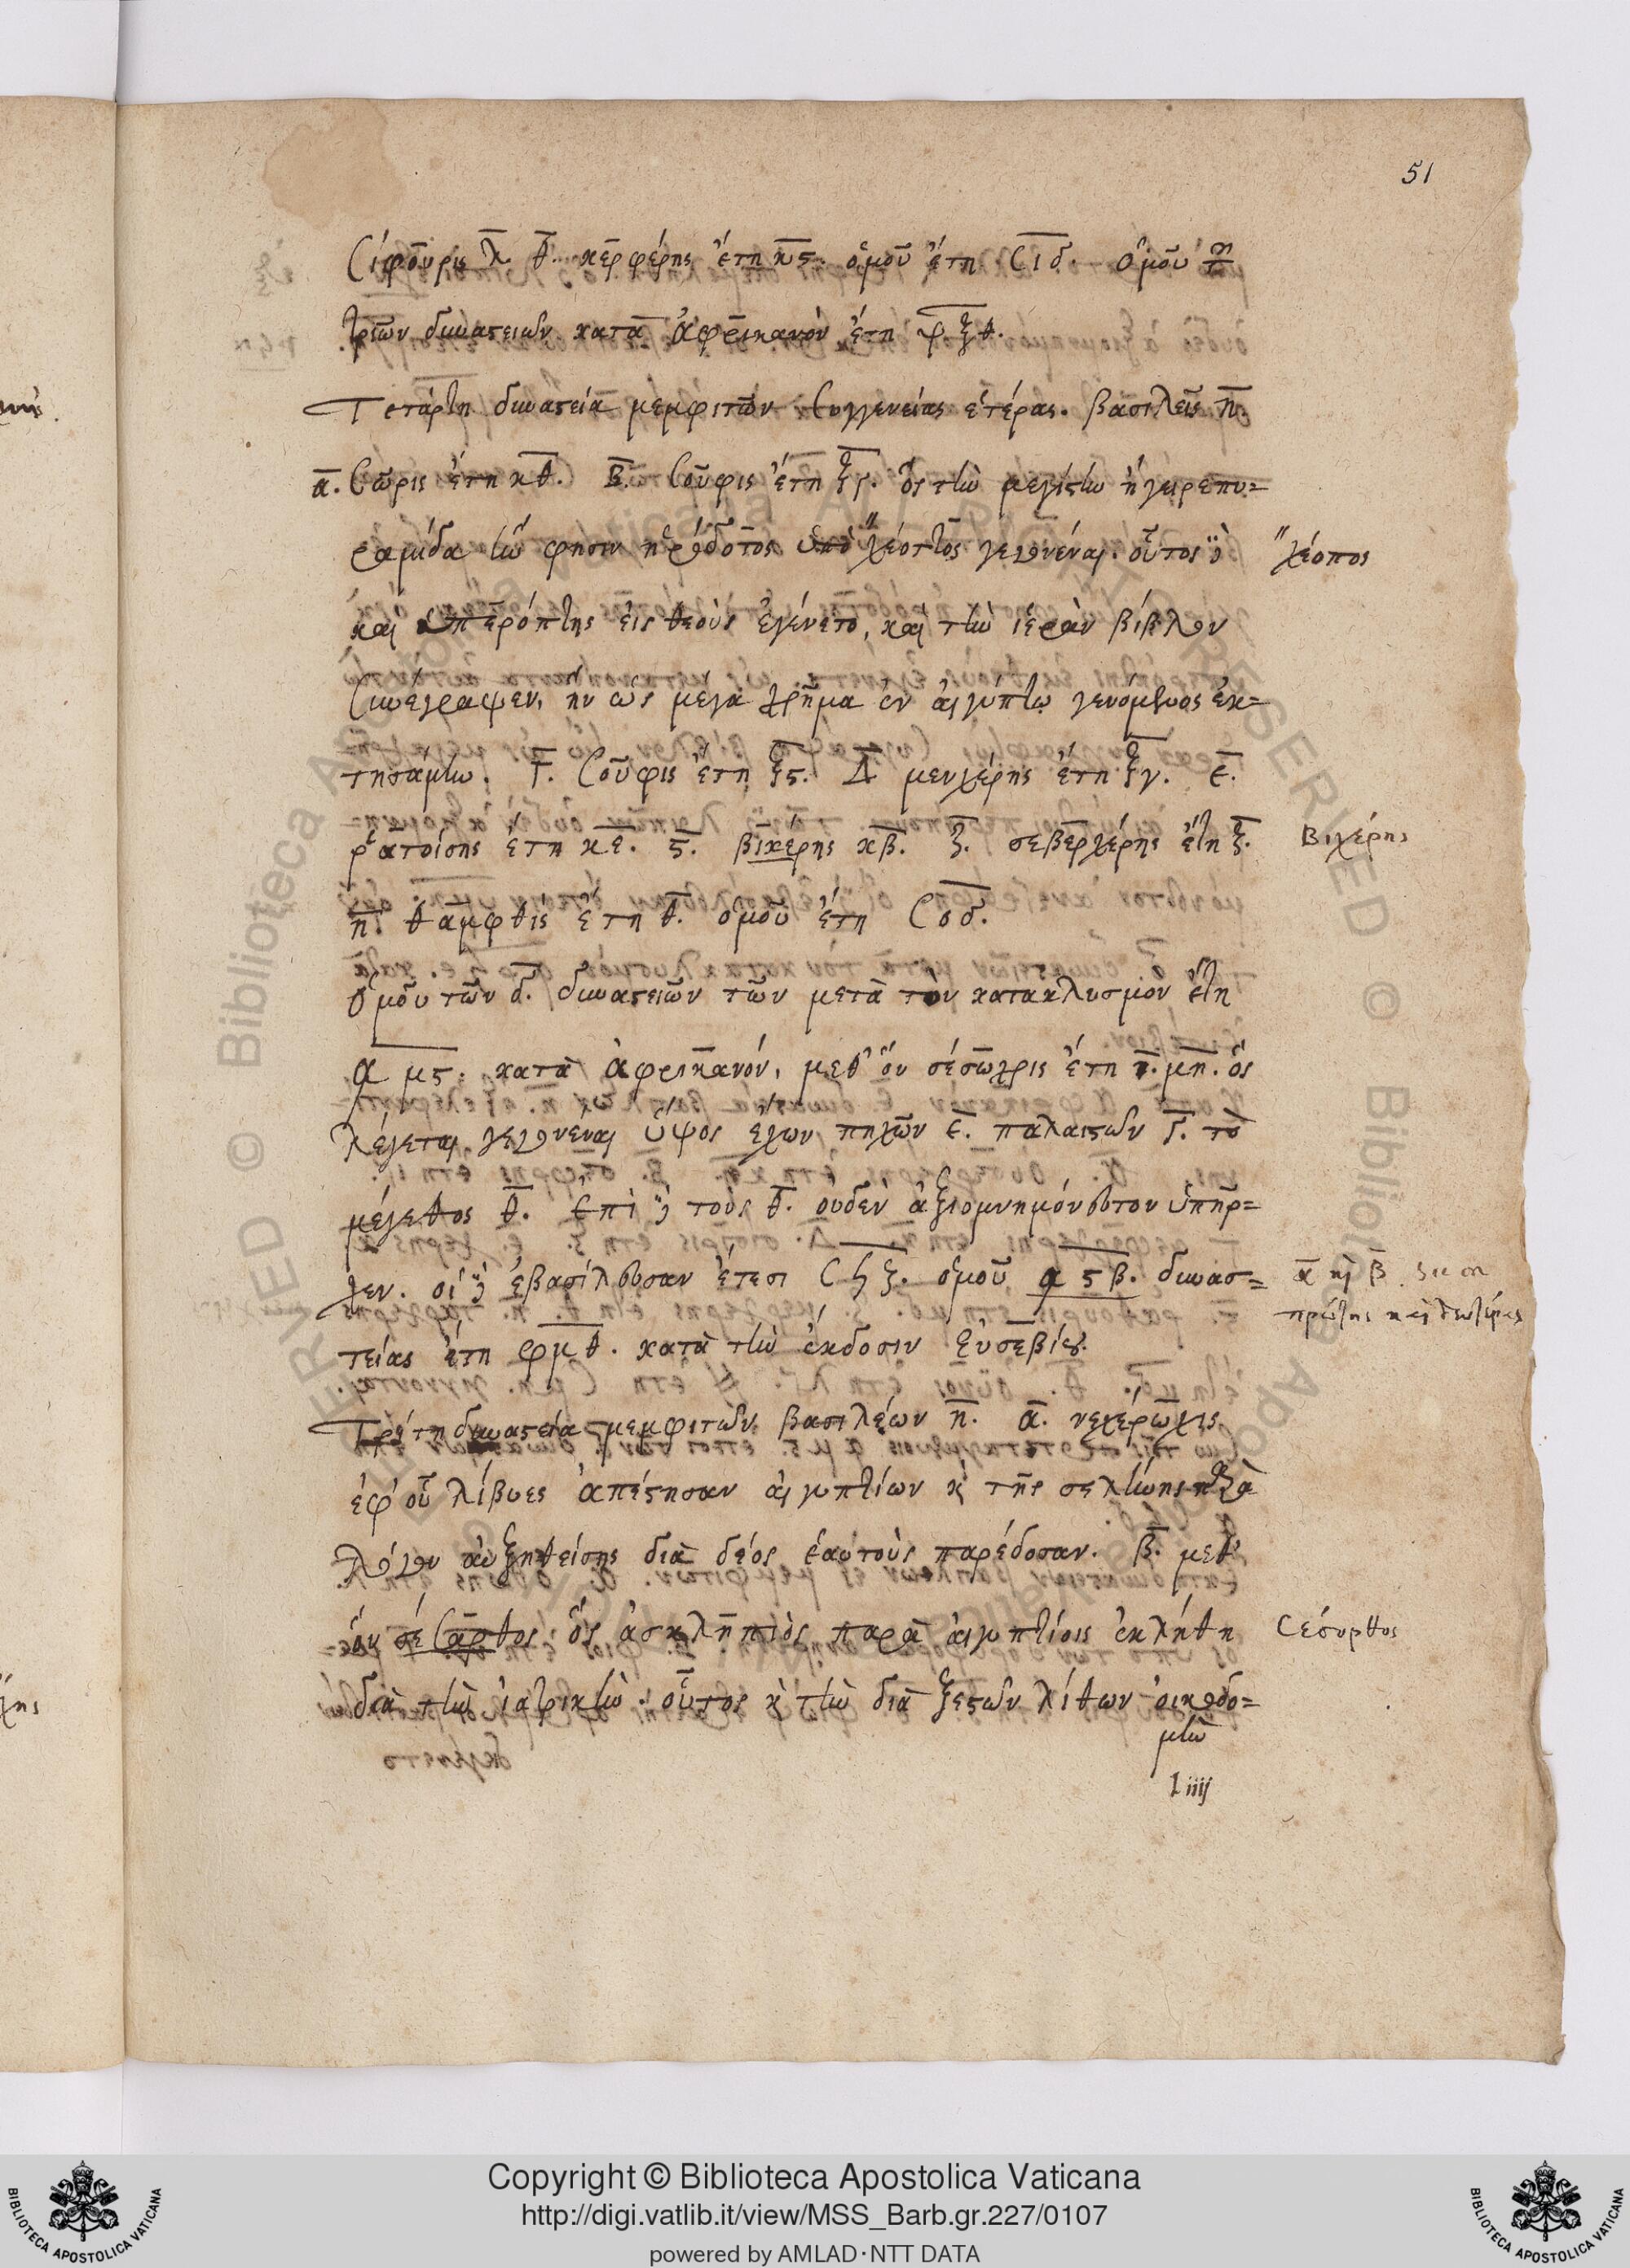 51
Σίφουρις λ̅ θ̅. κερφέρης ἔτη κ̅ϛ̅. ὁμοῦ ἔτη Σ̅ι̅δ̅. ὁμοῦ τῶν
τριῶν δυναστειῶν κατὰ ἀφρικανὸν ἔτη ψ̅ξ̅θ̅.
Τετάρτη δυναστεία μεμφιτῶν συγγενείας ἑτέρας. βασιλεῖς η̅.
α̅. Σῶρις ἔτη κ̅θ̅. β̅. Σοῦφις ἔτη ξ̅γ̅. ὃς τὴν μεγίστην ἤγειρε πυ=
ραμίδα ἥν φησιν ἡρόδοτος ὑπὸ "χέοπτος γεγονέναι. οὗτος δὲ
"χέοπος
καὶ ὑπερόπτης εἰς θεοὺς ἐγένετο, καὶ τὴν ἱερὰν βίβλον
συνέγραψεν, ἣν ὡς μέγα χρῆμα ἐν αἰγύπτῳ γενόμενος ἐκ=
τησάμην. Γ̅. Σοῦφις ἔτη ξ̅ϛ̅. Δ̅ μενχέρης ἔτη ξ̅γ̅. ε̅.
ῥατοίσης ἔτη κ̅ε̅. ϛ̅. βικέρης κ̅β̅. ζ̅. σεβερχέρης ἔτη ζ̅.
Βιχέρης
η̅. θαμφθὶς ἔτη θ̅. ὁμοῦ ἔτη Σ̅ο̅δ̅.
ὁμοῦ τῶν δ̅. δυναστειῶν τῶν μετὰ τὸν κατακλυσμὸν ἔτη
α̅μ̅ϛ̅. κατὰ ἀφρικανόν, μεθ' ὃν σέσωχρις ἔτη μ̅η̅. ὃς
λέγεται γεγονέναι ὕψος ἔχων πηχῶν ε̅. παλαιστῶν Γ̅. τὸ
μέγεθος θ̅. ἐπὶ δὲ τοὺς θ̅. οὐδὲν ἀξιομνημόνευτον ὑπῆρ=
χεν. οἱ δὲ ἐβασίλευσαν ἔτεσι Σ̅ϟ̅ζ̅. ὁμοῦ α ϛ β. δυνασ=
α̅ κὶ β̅.
πρώτης καὶ δευτέρας
τείας ἔτη φ̅μ̅θ̅. κατὰ τὴν ἔκδοσιν Εὐσεβίου.
Τρίτη δυναστεία μεμφιτῶν βασιλέων η̅. α̅. νεχέρωχις
ἐφ' οὗ λίβυες ἀπέστησαν αἰγυπτίων κὶ τῆς σελήνης παρὰ
λόγον αὐξηθείσης διὰ δέος ἑαυτοὺς παρέδοσαν. β̅. μεθ'
ὃν σέσορθος. ὃς ἀσκληπιὸς παρὰ αἰγυπτίοις ἐκλήθη
Σέσορθος
διὰ τὴν ἰατρικήν. οὗτος κὶ τὴν διὰ ξεστῶν λίθων οἰκοδο=
μὴν
l iiij
Copyright © Biblioteca Apostolica Vaticana
http://digi.vatlib.it/view/MSS_Barb.gr.227/0107
powered by AMLAD·NTT DATA
BIBLIOTECA APOSTOLICA VATICANA
BIBLIOTECA APOSTOLICA VATICANA